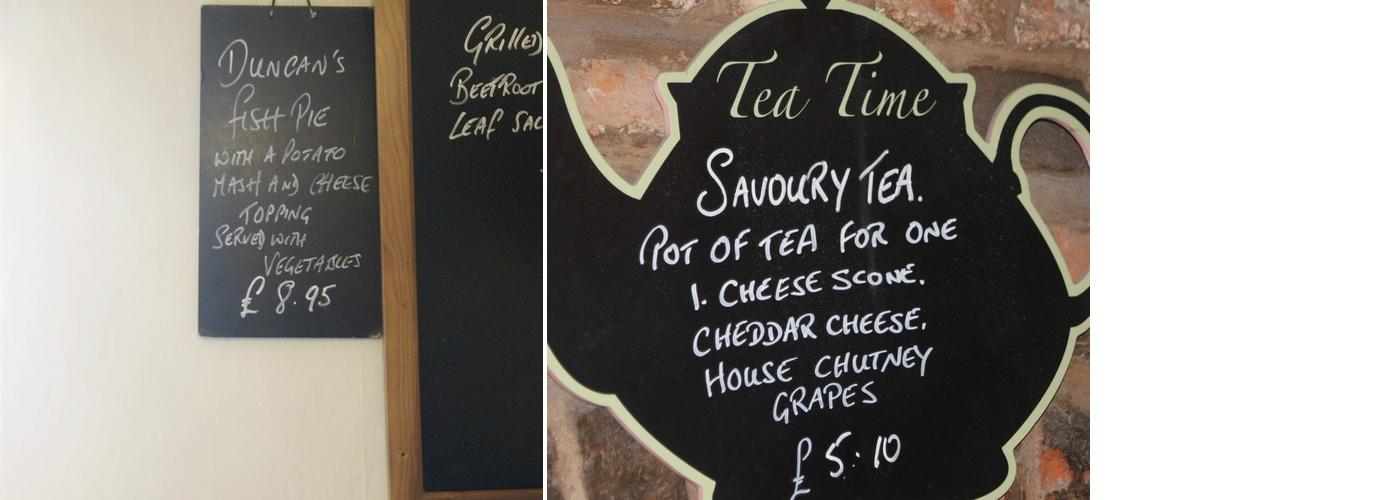 DUNCAN'S
FISH PIE
WITH A POTATO
MASH AND CHEESE
TOPPING
SERVED WITH
VEGETABLES
£ 8.95
GRILLED
BEETROOT
LEAF
Tea Time
SAVOURY TEA.
POT OF TEA FOR ONE
1. CHEESE SCONE.
CHEDDAR CHEESE.
HOUSE CHUTNEY
GRAPES
£ 5.10